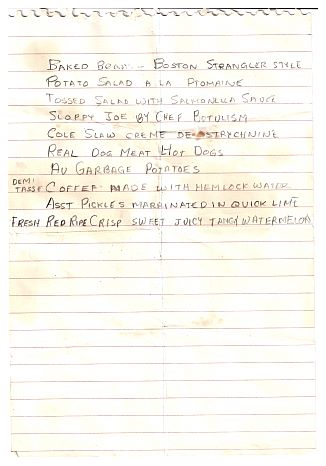 BAKED BEAN - BOSTON STRANGLER STYLE
POTATO SALAD A LA PTOMAINE
TOSSED SALAD WITH SALMONELLA SAUCE
SLOPPY JOE BY CHEF BOTULISM
COLE SLAW CREME DE STRYCHNINE
REAL DOG MEAT HOT DOGS
AU GARBAGE POTATOES
DEMI TASSE COFFEE MADE WITH HEMLOCK WATER
ASST PICKLES MARRINATED IN QUICK LIME
FRESH RED RIPE CRISP SWEET JUICY TANGY WATERMELON